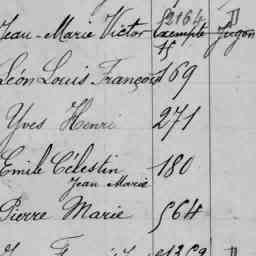 2164
Jean-Marie Victor exempté Jugon
15
Léon Louis François 169
Yves Henri 271
Emile Célestin 180
Jean Marie
Pierre Marie 564